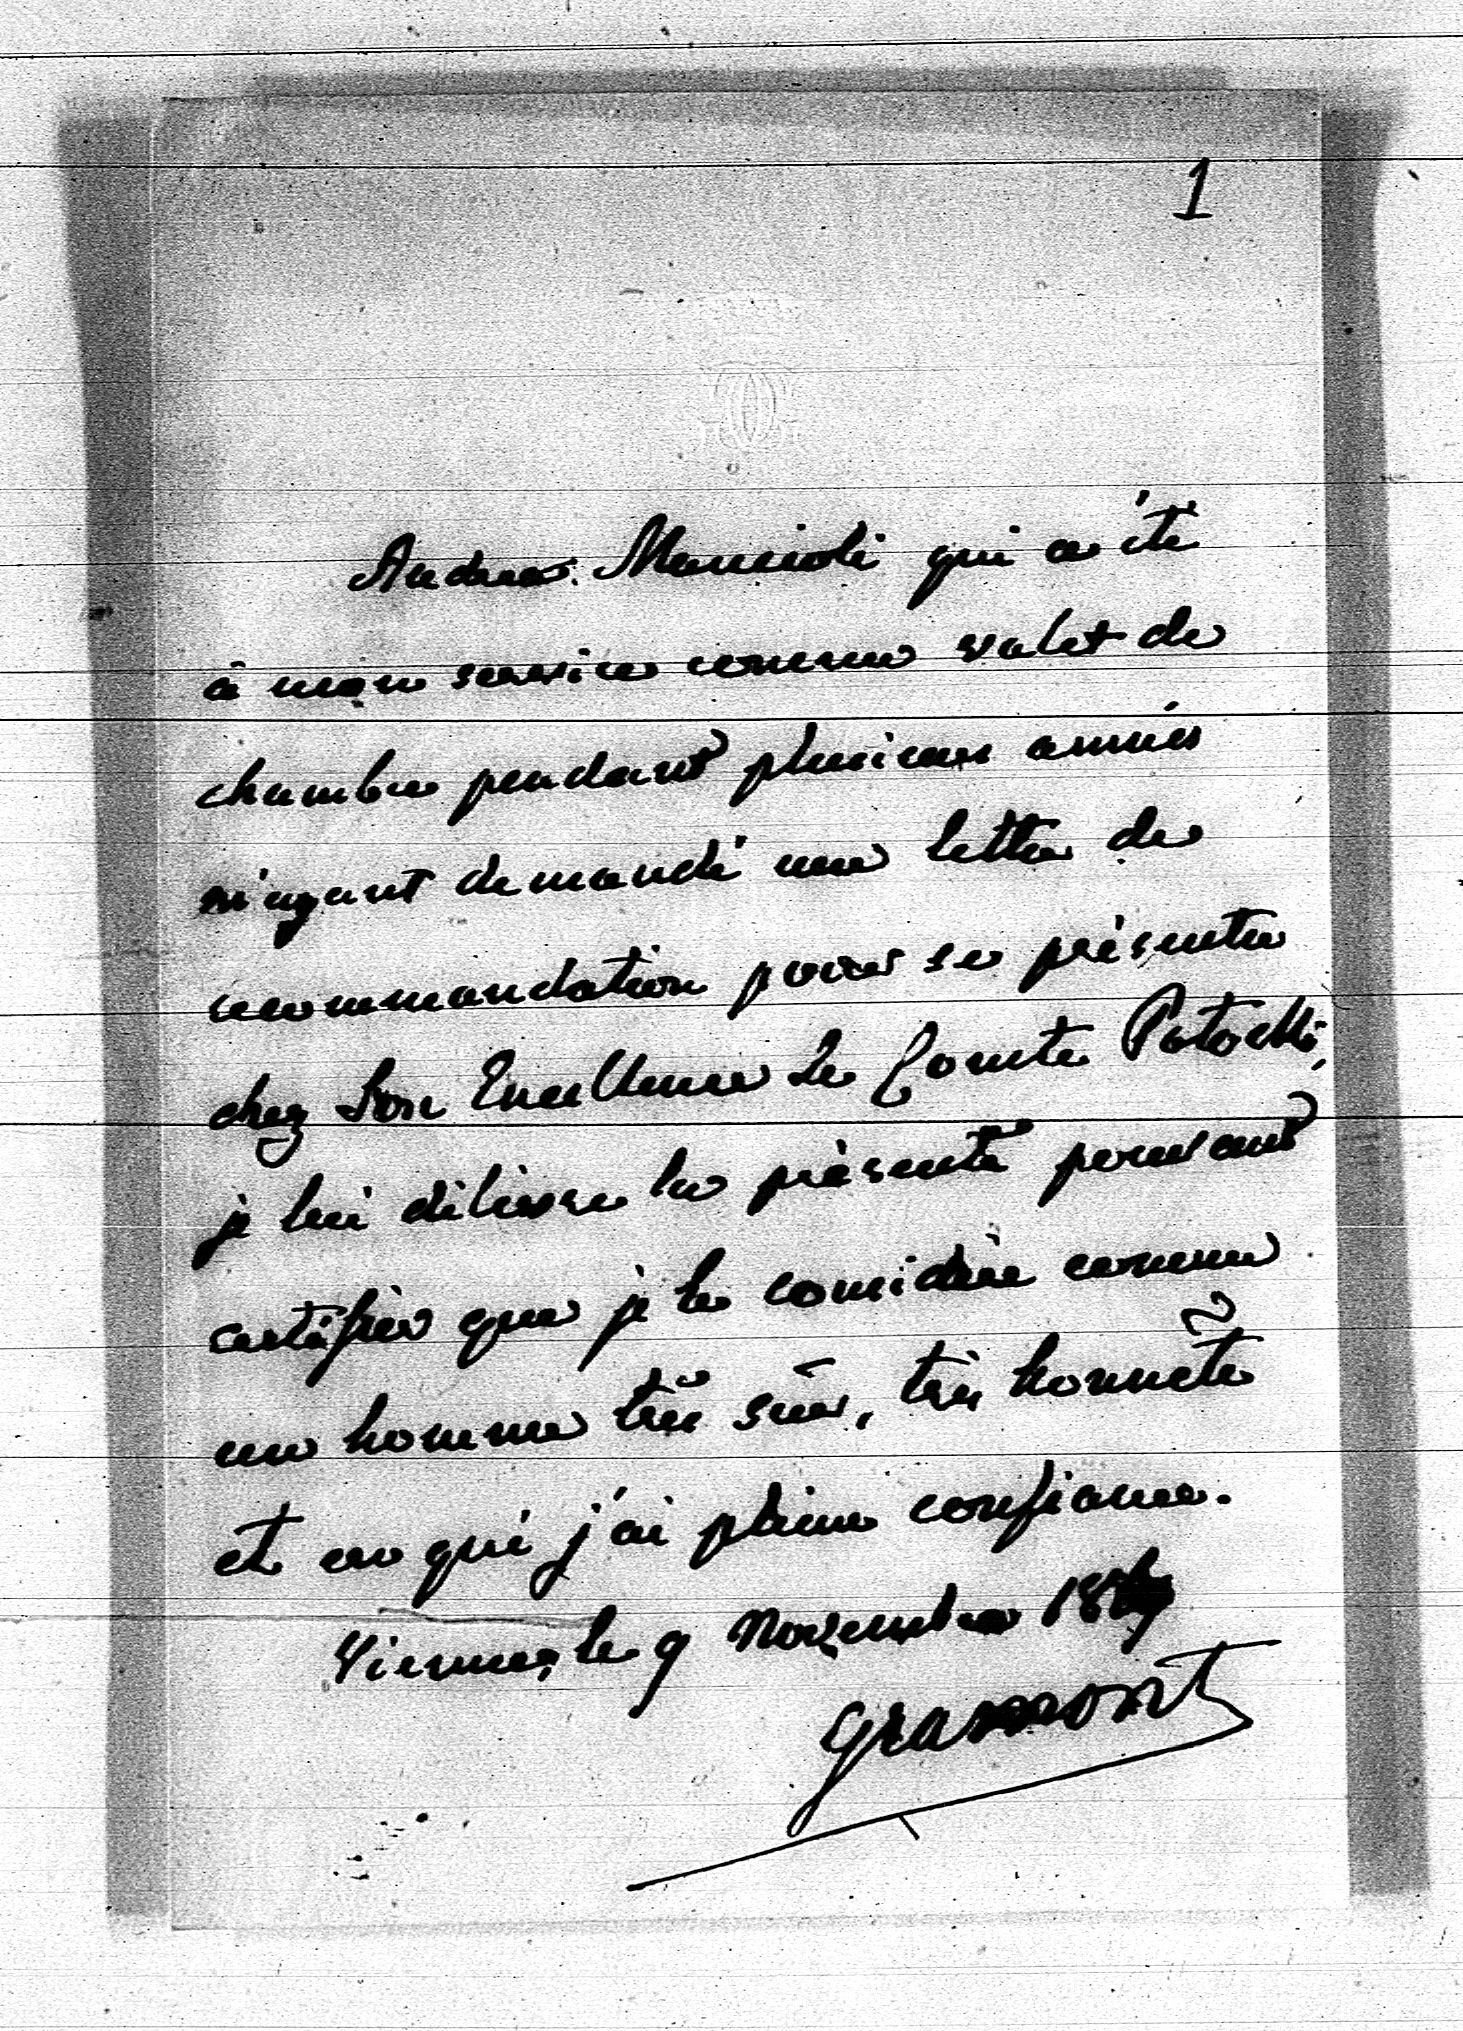 1
Andrea Mancioli qui a été
à mon service comme valet de
chambre pendant plusieurs années
m'ayant demandé une lettre de
recommandation pour se présenter
chez Son Excellence Le Comte Potocki,
je lui délivre la présente pouvant
certifier que je le considère comme
un homme très sûr, très honnête
et en qui j'ai pleine confiance.
Vienne, le 9 Novembre
Gramont